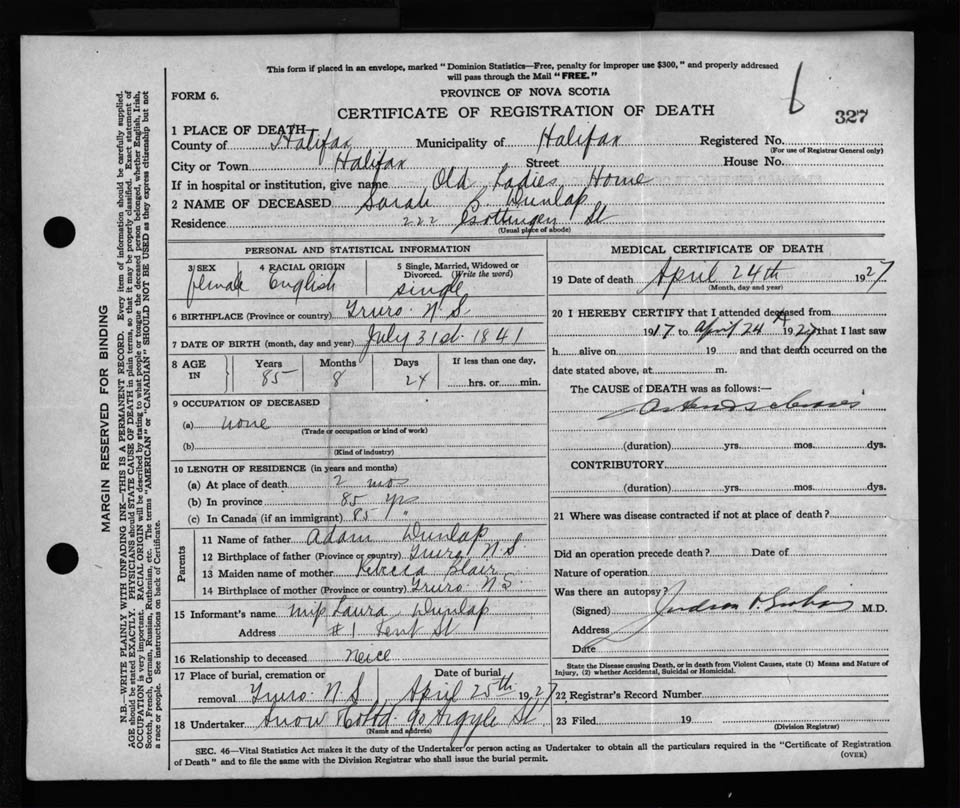 This form if placed in an envelope, marked "Dominion Statistics—Free, penalty for improper use $300," and properly addressed
will pass through the Mail "FREE."
6
327
FORM 6.
PROVINCE OF NOVA SCOTIA
CERTIFICATE OF REGISTRATION OF DEATH
1 PLACE OF DEATH—
County of Halifax Municipality of Halifax Registered No.
(For use of Registrar General only)
City or Town Halifax Street House No.
If in hospital or institution, give name Old Ladies Home
2 NAME OF DECEASED Sarah B Dunlap
Residence 222 Gottingen St
(Usual place of abode)
PERSONAL AND STATISTICAL INFORMATION
3 SEX 4 RACIAL ORIGIN 5 Single, Married, Widowed or
Divorced. (Write the word)
female English single
6 BIRTHPLACE (Province or country) Truro N.S
7 DATE OF BIRTH (month, day and year) July 31st 1841
8 AGE IN Years Months Days If less than one day,
85 8 24 hrs. or min.
9 OCCUPATION OF DECEASED
(a) none
(Trade or occupation or kind of work)
(b)
(Kind of industry)
10 LENGTH OF RESIDENCE (in years and months)
(a) At place of death 2 mos
(b) In province 85 yrs
(c) In Canada (if an immigrant) 85 "
Parents
11 Name of father Adam Dunlap
12 Birthplace of father (Province or country) Truro N.S.
13 Maiden name of mother Rebecca Blair
14 Birthplace of mother (Province or country) Truro N S.
15 Informant's name Miss Laura Dunlap
Address #1 Tent St
16 Relationship to deceased neice
17 Place of burial, cremation or Date of burial
removal Truro. N.S April 25th 1927
18 Undertaker Snow & Co Ltd. 90 Argyle St
(Name and address)
MEDICAL CERTIFICATE OF DEATH
19 Date of death April 24th 1927
(Month, day and year)
20 I HEREBY CERTIFY that I attended deceased from
1917 to April 24th 1927, that I last saw
h alive on 19 and that death occurred on the
date stated above, at m.
The CAUSE of DEATH was as follows:—
Arteriosclerosis
(duration) yrs. mos. dys.
CONTRIBUTORY
(duration) yrs. mos. dys.
21 Where was disease contracted if not at place of death?
Did an operation precede death? Date of
Nature of operation
Was there an autopsy?
(Signed) Judson M.D.
Address
Date
State the Disease causing Death, or in death from Violent Causes, state (1) Means and Nature of
Injury, (2) whether Accidental, Suicidal or Homicidal.
22 Registrar's Record Number
23 Filed 19
(Division Registrar)
SEC. 46—Vital Statistics Act makes it the duty of the Undertaker or person acting as Undertaker to obtain all the particulars required in the "Certificate of Registration
of Death" and to file the same with the Division Registrar who shall issue the burial permit.
(OVER)
MARGIN RESERVED FOR BINDING
N.B.—WRITE PLAINLY WITH UNFADING INK—THIS IS A PERMANENT RECORD. Every item of information should be carefully supplied.
AGE should be stated EXACTLY. PHYSICIANS should STATE CAUSE OF DEATH in plain terms, so that it may be properly classified. Exact statement of
OCCUPATION is very important. RACIAL ORIGIN will be described by stating to what people or tongue the deceased person belonged, whether English, Irish,
Scotch, French, German, Russian, Ruthenian, etc. The terms "AMERICAN" or "CANADIAN" SHOULD NOT BE USED as they express citizenship but not
a race or people. See instructions on back of Certificate.